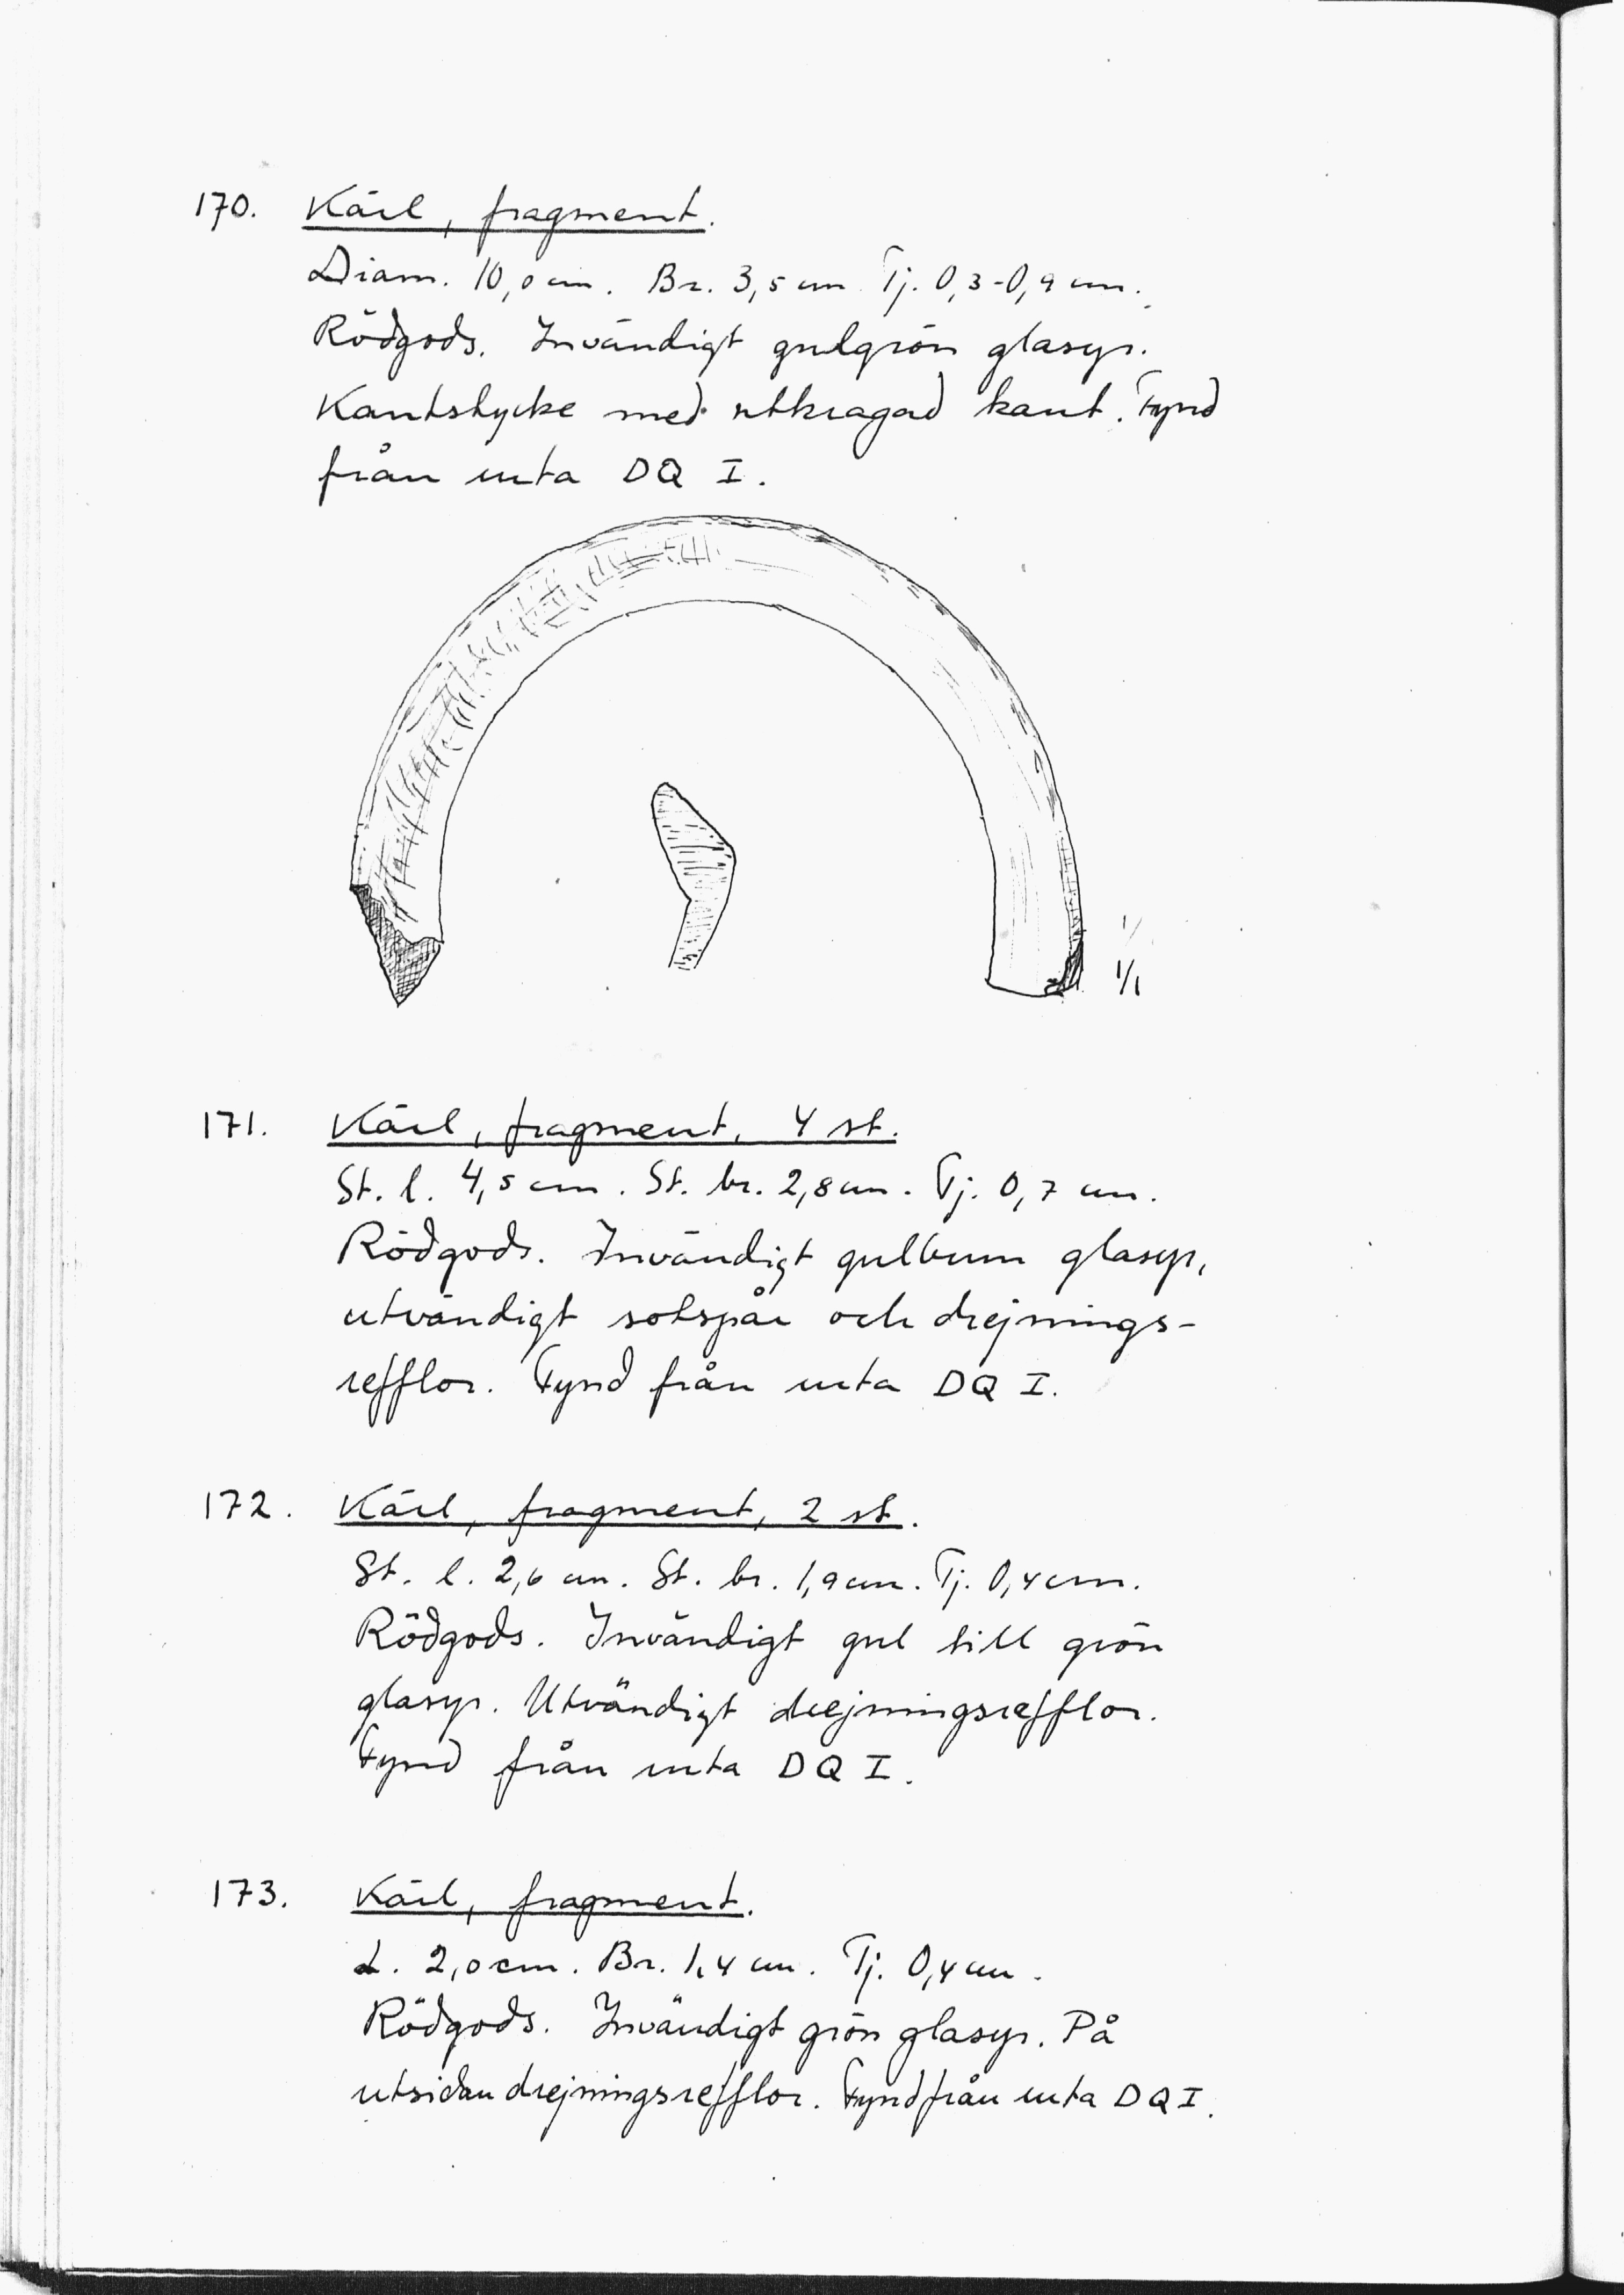 170. Kärl, fragment.
Diam. 10,0 cm. Br. 3,5 cm Tj. 0,3-0,9 cm.
Rödgods. Invändigt gulgrön glasyr.
Kantstycke med utkragad kant. Fynd
från ruta DQ I.
1/
1/1
171. Kärl, fragment, 4 st.
St. l. 4,5 cm. St. br. 2,8 cm. Tj. 0,7 cm.
Rödgods. Invändigt gulbrun glasyr,
utvändigt sotspår och drejnings-
refflor. Fynd från ruta DQ I.
172. Kärl, fragment, 2 st.
St. l. 2,6 cm. St. br. 1,9 cm. Tj. 0,4 cm.
Rödgods. Invändigt gul till grön
glasyr. Utvändigt drejningsrefflor.
Fynd från ruta DQ I.
173. Kärl, fragment.
L. 2,0 cm. Br. 1,4 cm. Tj. 0,4 cm.
Rödgods. Invändigt grön glasyr. På
utsidan drejningsrefflor. Fynd från ruta DQ I.